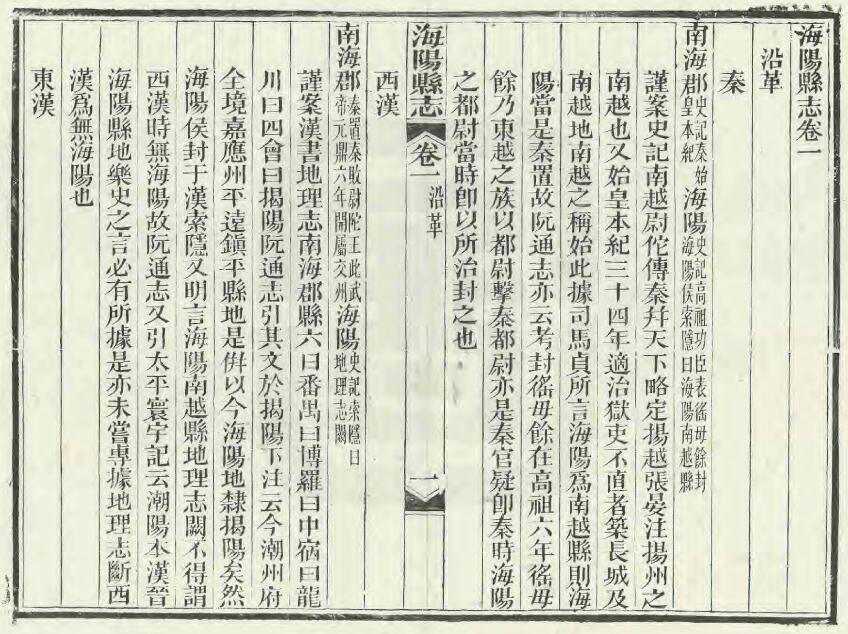 海陽縣志卷一
沿革
秦
南海郡史記秦始皇本紀海陽史記高祖功臣表徭毋餘封海陽侯索隱曰海陽南越縣
謹案史記南越尉佗傳秦幷天下略定揚越張晏注揚州之
南越也又始皇本紀三十四年適治獄吏不直者築長城及
南越地南越之稱始此據司馬貞所言海陽爲南越縣則海
陽當是秦置故阮通志亦云考封徭毋餘在高祖六年徭毋
餘乃東越之族以都尉擊秦都尉亦是秦官疑卽秦時海陽
之都尉當時卽以所治封之也
海陽縣志 卷一 沿革 一
西漢
南海郡秦置秦敗尉佗王此武帝元鼎六年開屬交州海陽史記索隱曰地理志闕
謹案漢書地理志南海郡縣六曰番禺曰博羅曰中宿曰龍
川曰四會曰揭陽阮通志引其文於揭陽下注云今潮州府
全境嘉應州平遠鎭平縣地是倂以今海陽地隸揭陽矣然
海陽侯封于漢索隱又明言海陽南越縣地理志闕不得謂
西漢時無海陽故阮通志又引太平寰宇記云潮陽本漢晉
海陽縣地樂史之言必有所據是亦未嘗專據地理志斷西
漢爲無海陽也
東漢